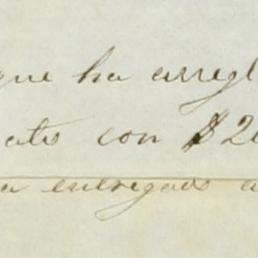 que ha arregl
ato con $2
a entregado a